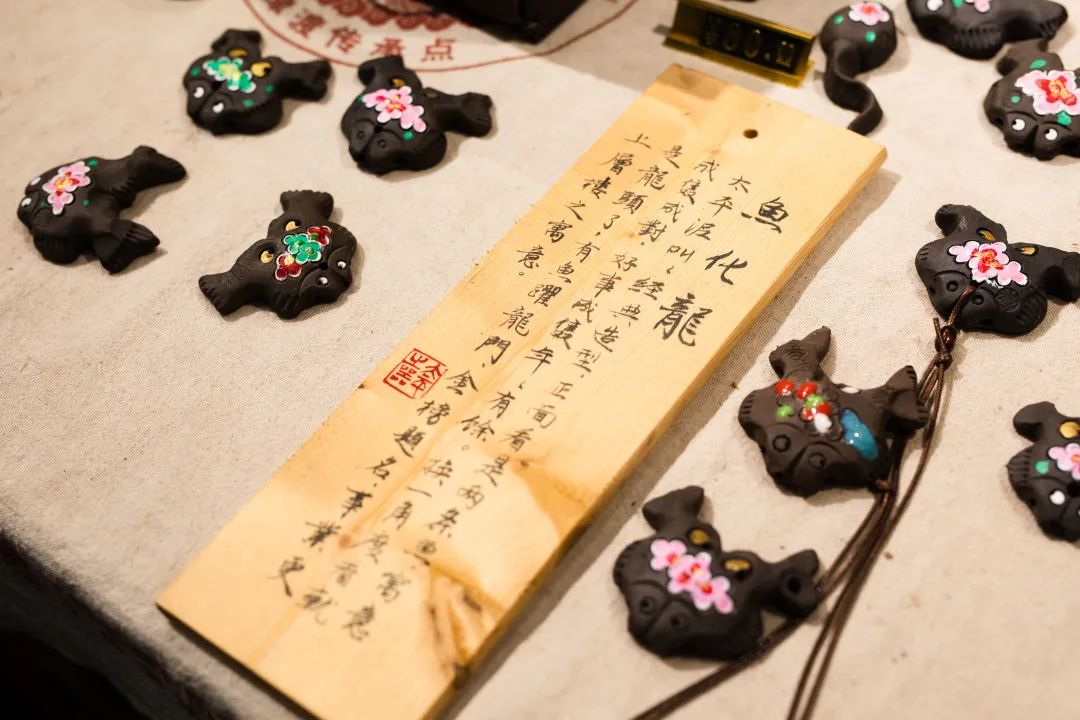 渡传承点
魚化龍
太平泥叫叫,經典造型,正面看是兩条魚,寓意
成雙成對,好事成雙,年年有餘。换一角度看就
是龍頭了,有魚躍龍門,金榜題名,事業更
上層樓之寓意。